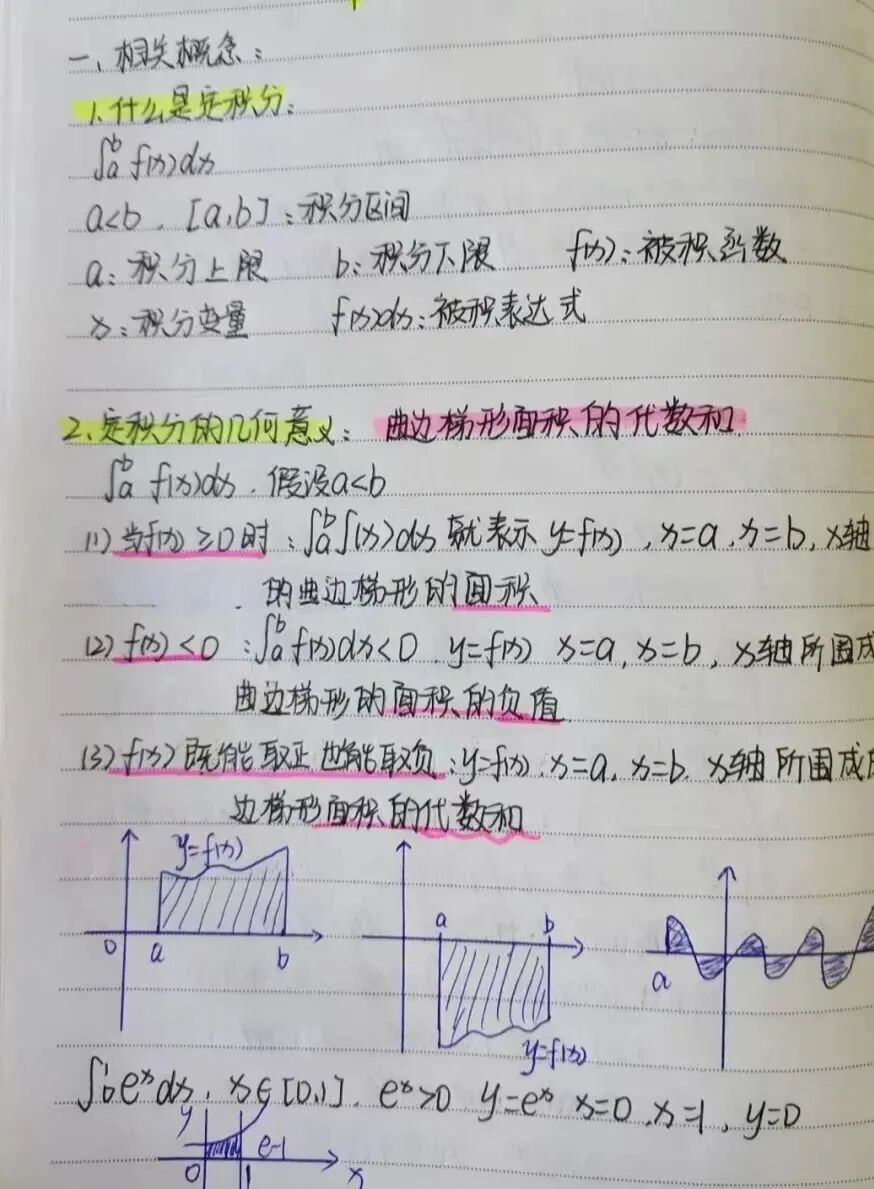 一、相关概念：
1.什么是定积分：
∫ₐᵇ f(x)dx
a<b，[a,b]：积分区间
a：积分上限 b：积分下限 f(x)：被积函数
x：积分变量 f(x)dx：被积表达式
2、定积分的几何意义：曲边梯形面积的代数和
∫ₐᵇ f(x)dx，假设a<b
(1)当f(x)≥0时：∫ₐᵇ f(x)dx就表示y=f(x)，x=a，x=b，x轴
的曲边梯形的面积
(2) f(x)<0：∫ₐᵇ f(x)dx<0，y=f(x) x=a，x=b，x轴所围成
曲边梯形的面积的负值
(3) f(x)既能取正也能取负：y=f(x)，x=a，x=b，x轴所围成
边梯形面积的代数和
y=f(x)
0 a b
a b
y=f(x)
a
∫₀¹ eˣdx，x∈[0,1]，eˣ>0 y=eˣ x=0，x=1，y=0
y
e-1
0 1 x